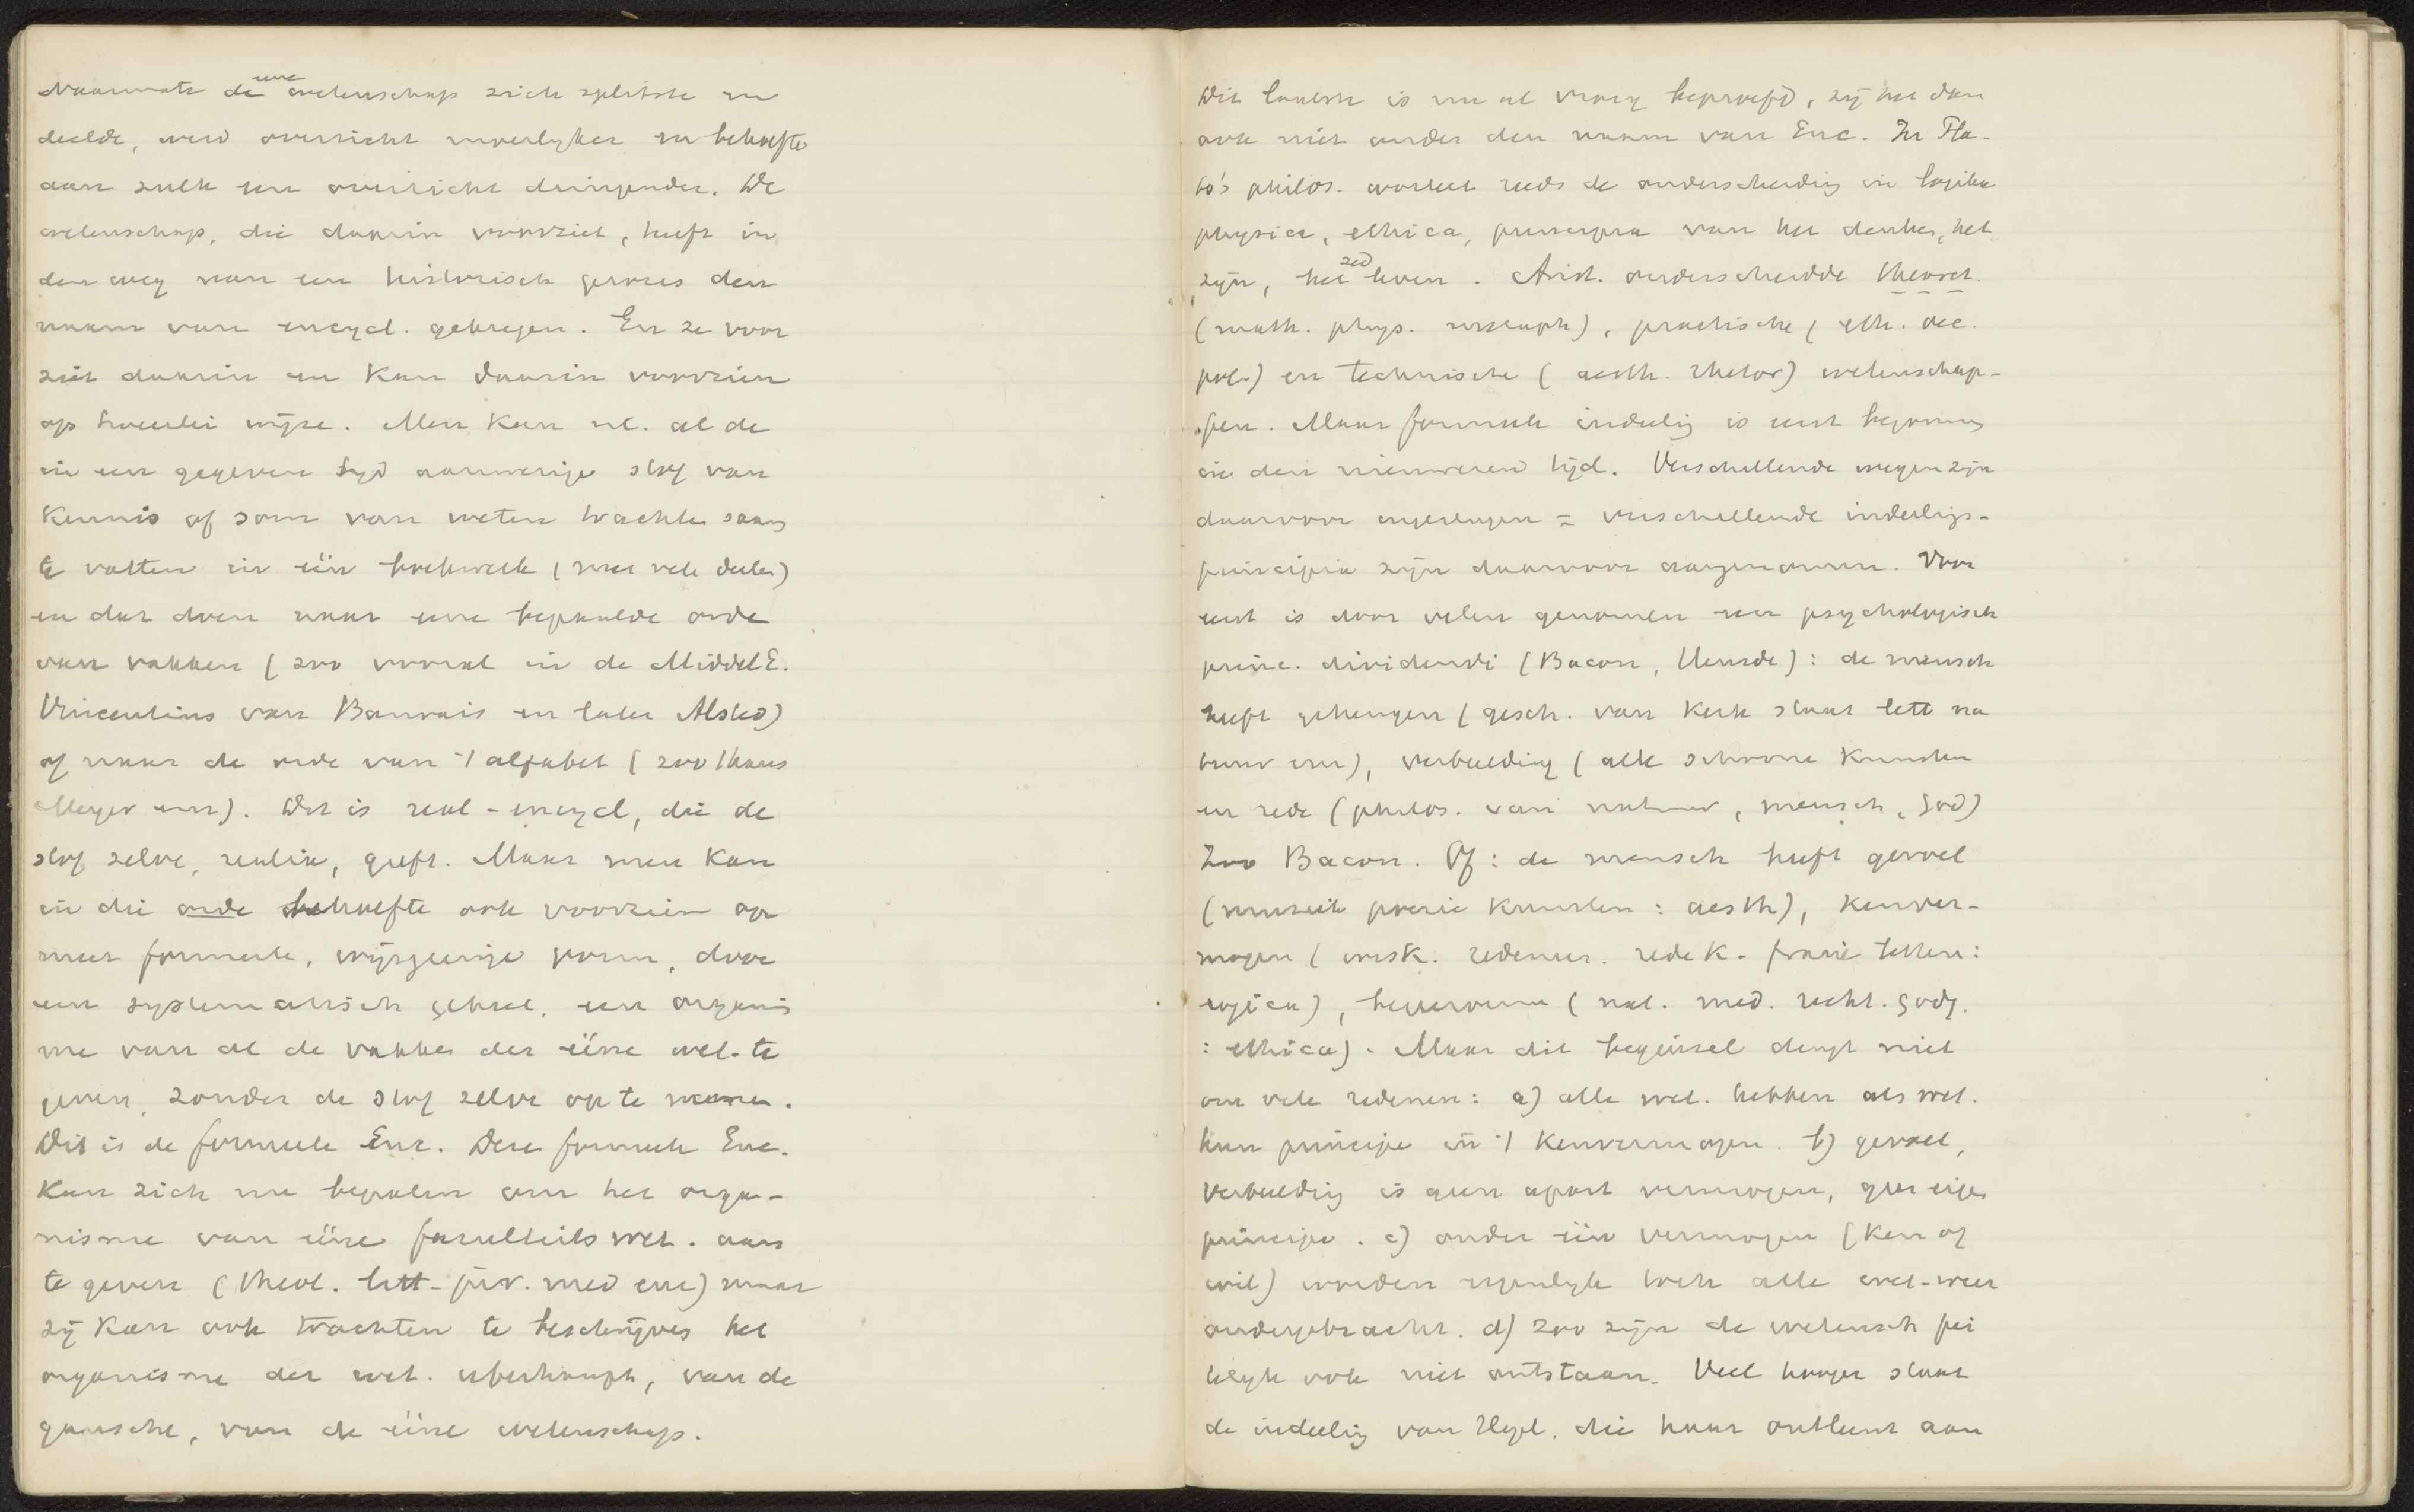 Naarmate de eene wetenschap zich splitste en
deelde, werd overzicht moeilyker en behoefte
aan zulk een overzicht dringender. De
wetenschap, die daarin voorziet, heeft in
den weg van een historisch proces den
naam van encycl. gekregen. En ze voor
ziet daarin en kan daarin voorzien
op tweeërlei wijze. Men kan nl. al de
in een gegeven tyd aanwezige stof van
kennis of som van weten trachten saam
te vatten in één boekwerk (met vele deelen)
en dat doen naar eene bepaalde orde
van vakken (zoo vooral in de MiddelE.
Vincentius van Bauvais en later Alsted)
of naar de orde van 't alfabet (zoo thans
Meyer enz). Dit is real-encycl, die de
stof zelve, realia, geeft. Maar men kan
in die behoefte ook voorzien op
meer formeele, wijsgeerige vorm, door
een systematisch geheel, een organis
me van al de vakken der ééne wet. te
geven, zonder de stof zelve op te nemen.
Dit is de formeele Enc. Deze formeele Enc.
kan zich nu bepalen om het orga-
nisme van ééne faculteits wet. aan
te geven (theol. litt. jur. med enz) maar
zij kan ook trachten te beschrijven het
organisme der wet. überhaupt, van de
gansche, van de ééne wetenschap.
Dit laatste is nu al vroeg beproefd, zij het dan
ook niet onder den naam van Enc. In Pla-
to's philos. wortelt reeds de onderscheiding in logika
physica, ethica, principia van het denken, het
zijn, het zed leven. Arist. onderscheidde theoret.
(math. phys. metaph), practische (eth. oec.
pol.) en technische (aesth. rhetor) wetenschap-
pen. Maar formeele indeeling is eerst begonnen
in den nieuweren tijd. Verschillende wegen zijn
daarvoor ingeslagen = verschillende indeelings-
principia zijn daarvoor aangenomen. Voor
eerst is door velen genomen een psychologisch
princ. dividendi (Bacon, Heusde): de mensch
heeft geheugen (gesch. van kerk staat lett na
tuur enz), verbeelding (alle schoone kunsten
en rede (philos. van natuur, mensch, God)
Zoo Bacon. Of: de mensch heeft gevoel
(muziek poezie kunsten: aesth), kenver-
mogen (wisk. redeneer. rede k. fraaie letteren:
logica), (nat. med. recht. godg.
: ethica). Maar dit beginsel deugt niet
om vele redenen: a) alle wet. hebben als wet.
hun principe in 't kenvermogen. b) gevoel,
verbeelding is geen apart vermogen, geen eigen
principe. c) onder één vermogen (ken of
wil) worden eigenlyk toch alle wet. weer
ondergebracht. d) zoo zijn de wetensch fei
telyk ook niet ontstaan. Veel hooger staat
de indeeling van Hegel, die haar ontleent aan